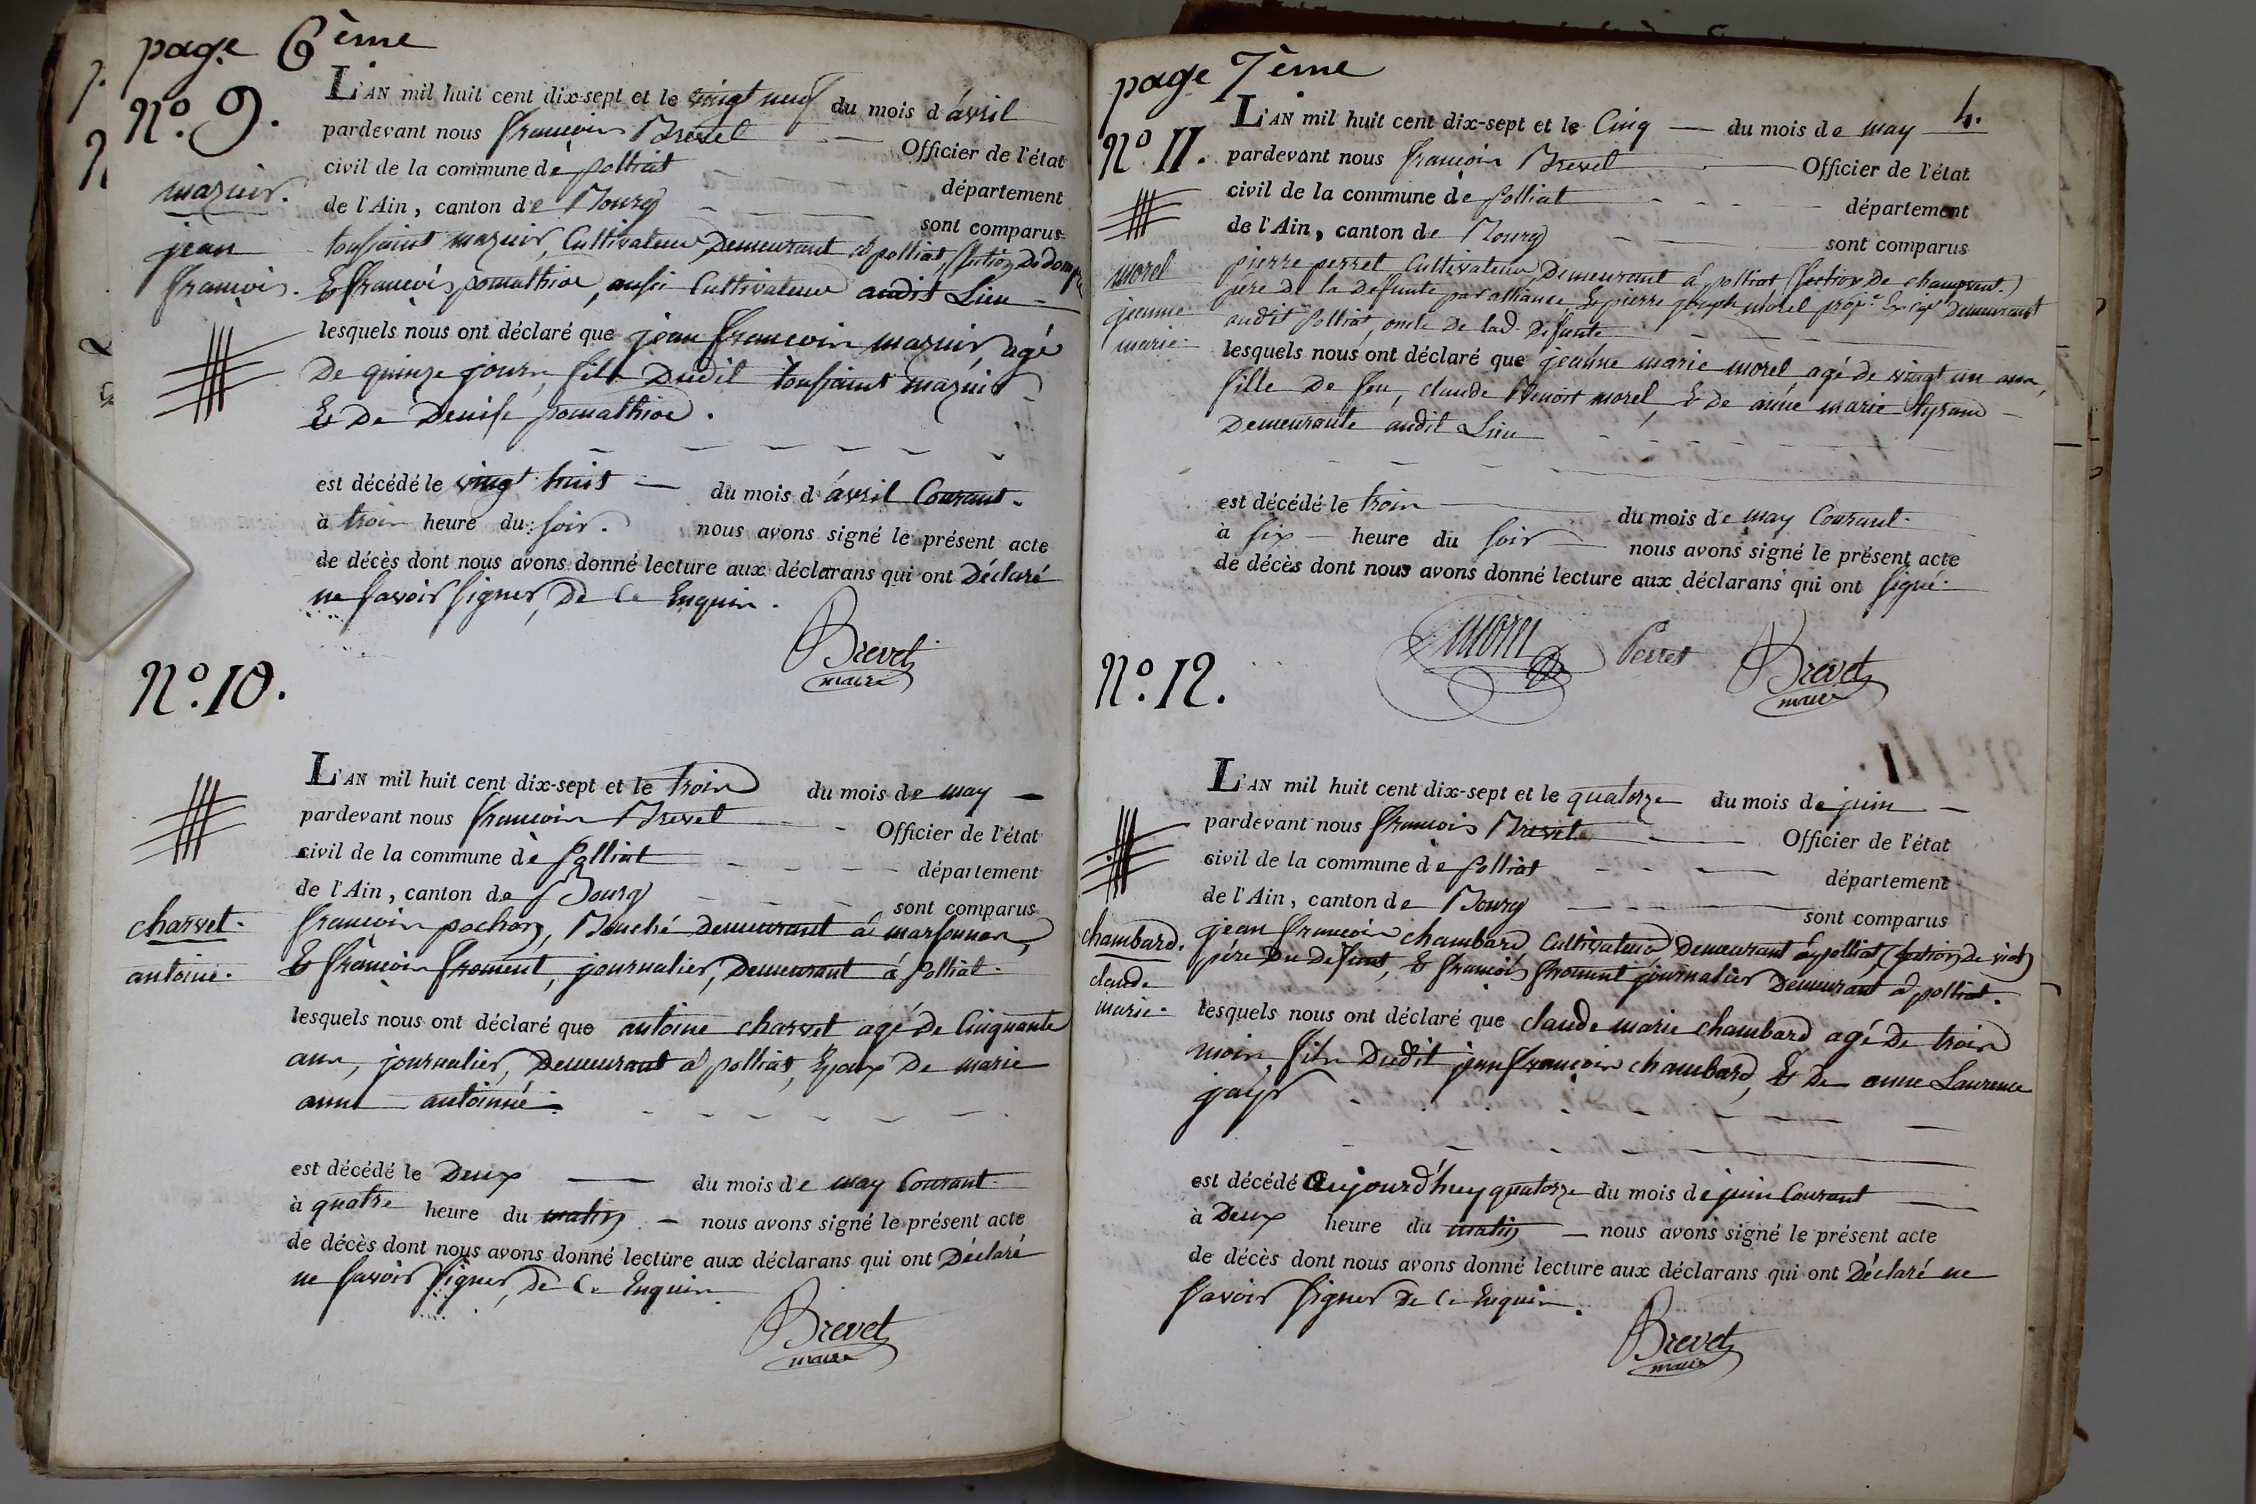 page 6ème
N.º 9.
mazuir.
jean
françois.
L'AN mil huit cent dix-sept et le vingt neuf du mois d'avril
pardevant nous françois Brevet Officier de l'état
civil de la commune de polliat département
de l'Ain, canton de Bourg sont comparus
toussaint mazuir, Cultivateur Demeurant à polliat, (section De
& françois pomathiod, aussi Cultivateur audit Lieu
lesquels nous ont déclaré que jean françois mazuir, agé
De quinze jours, fils Dudit toussaint mazuir
& De Denise pomathiod.
est décédé le vingt huit du mois d'avril Courant.
à trois heure du soir. nous avons signé le présent acte
de décès dont nous avons donné lecture aux déclarans qui ont Déclaré
ne savoir signer, De Ce Enquis.
Brevet
maire
N.º 10.
charvet.
antoine.
L'AN mil huit cent dix-sept et le trois du mois de may
pardevant nous françois Brevet Officier de l'état
civil de la commune de polliat département
de l'Ain, canton de Bourg sont comparus
françois pochon, Demeurant à marsonnas,
& françois froment, journalier, Demeurant à polliat.
lesquels nous ont déclaré que antoine charvet agé De Cinquante
ans, journalier, Demeurant à polliat, Epoux De marie
anne antoinne.
est décédé le Deux du mois de may Courant.
à quatre heure du matin nous avons signé le présent acte
de décès dont nous avons donné lecture aux déclarans qui ont Déclaré
ne savoir signer, De Ce Enquis
Brevet
maire
page 7ème
4.
N.º 11.
morel
jeanne
marie.
L'AN mil huit cent dix-sept et le Cinq du mois de may
pardevant nous françois Brevet Officier de l'état
civil de la commune de polliat département
de l'Ain, canton de Bourg sont comparus
pierre perret Cultivateur Demeurant à polliat (section De champvent.)
pere De la Defunte par alliance, & pierre joseph morel Demeurant
audit polliat, oncle De lad. Defunte
lesquels nous ont déclaré que jeanne marie morel agé de vingt un ans,
fille De feu, claude Benoit morel, & de anne marie tyrand
Demeurante audit Lieu
est décédé le trois du mois de may Courant.
à six heure du soir nous avons signé le présent acte
de décès dont nous avons donné lecture aux déclarans qui ont signé.
Morel Perret Brevet
maire
N.º 12.
chambard.
claude
marie.
L'AN mil huit cent dix-sept et le quatorze du mois de juin
pardevant nous françois Brevet Officier de l'état
civil de la commune de polliat département
de l'Ain, canton de Bourg sont comparus
jean françois chambard Cultivateur Demeurant à polliat, (section de
pére Du Defunt, & françois froment journalier Demeurant à polliat.
lesquels nous ont déclaré que claude marie chambard agé De trois
mois, fils Dudit jean françois chambard, & De anne Laurence
est décédé aujourd'huy quatorze du mois de juin Courant
à Deux heure du matin nous avons signé le présent acte
de décès dont nous avons donné lecture aux déclarans qui ont Déclaré ne
savoir signer De Ce Enquis.
Brevet
maire